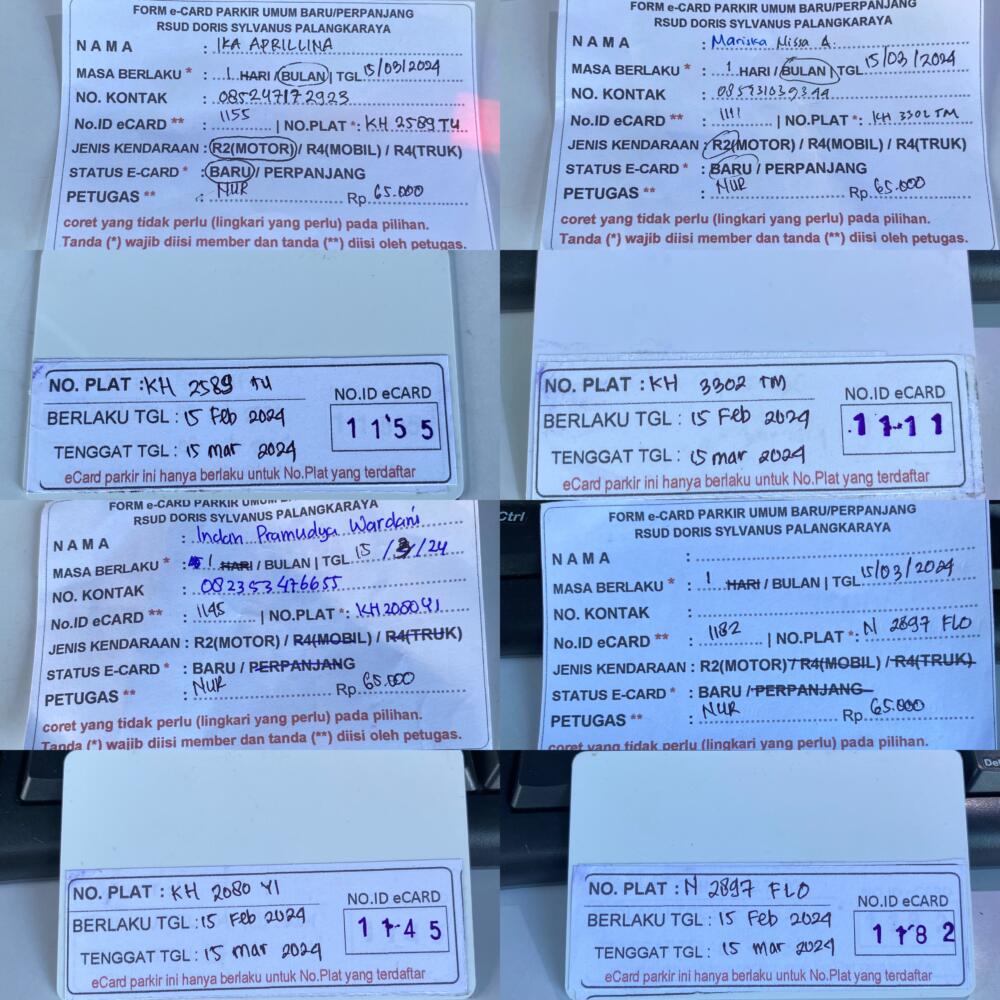 FORM e-CARD PARKIR UMUM BARU/PERPANJANG
RSUD DORIS SYLVANUS PALANGKARAYA
NAMA : IKA APRILLINA
MASA BERLAKU * : 1 HARI / BULAN | TGL 15/03/2024
NO. KONTAK : 085247172923
No.ID eCARD ** : 1155 | NO.PLAT *: KH 2589 TU
JENIS KENDARAAN : R2(MOTOR) / R4(MOBIL) / R4(TRUK)
STATUS E-CARD * : BARU / PERPANJANG
PETUGAS ** : NUR Rp. 65.000
coret yang tidak perlu (lingkari yang perlu) pada pilihan.
Tanda (*) wajib diisi member dan tanda (**) diisi oleh petugas.
FORM e-CARD PARKIR UMUM BARU/PERPANJANG
RSUD DORIS SYLVANUS PALANGKARAYA
NAMA : Mariska Nissa A.
MASA BERLAKU * : 1 HARI / BULAN | TGL 15/03/2024
NO. KONTAK : 085931039344
No.ID eCARD ** : 1111 | NO.PLAT *: KH 3302 TM
JENIS KENDARAAN : R2(MOTOR) / R4(MOBIL) / R4(TRUK)
STATUS E-CARD * : BARU / PERPANJANG
PETUGAS ** : NUR Rp. 65.000
coret yang tidak perlu (lingkari yang perlu) pada pilihan.
Tanda (*) wajib diisi member dan tanda (**) diisi oleh petugas.
NO. PLAT : KH 2589 TU
NO.ID eCARD
BERLAKU TGL : 15 Feb 2024
1155
TENGGAT TGL : 15 mar 2024
eCard parkir ini hanya berlaku untuk No.Plat yang terdaftar
NO. PLAT : KH 3302 TM
NO.ID eCARD
BERLAKU TGL : 15 Feb 2024
1111
TENGGAT TGL : 15 mar 2024
eCard parkir ini hanya berlaku untuk No.Plat yang terdaftar
FORM e-CARD PARKIR UMUM
RSUD DORIS SYLVANUS PALANGKARAYA
NAMA : Indan Pramudya Wardani
MASA BERLAKU * : 1 HARI / BULAN | TGL 15/3/24
NO. KONTAK : 082353476655
No.ID eCARD ** : 1145 | NO.PLAT *: KH 2080 YI
JENIS KENDARAAN : R2(MOTOR) / R4(MOBIL) / R4(TRUK)
STATUS E-CARD * : BARU / PERPANJANG
PETUGAS ** : NUR Rp. 65.000
coret yang tidak perlu (lingkari yang perlu) pada pilihan.
Tanda (*) wajib diisi member dan tanda (**) diisi oleh petugas.
Ctrl
FORM e-CARD PARKIR UMUM BARU/PERPANJANG
RSUD DORIS SYLVANUS PALANGKARAYA
NAMA :
MASA BERLAKU * : 1 HARI / BULAN | TGL 15/03/2024
NO. KONTAK :
No.ID eCARD ** : 1182 | NO.PLAT *: N 2897 FLO
JENIS KENDARAAN : R2(MOTOR) / R4(MOBIL) / R4(TRUK)
STATUS E-CARD * : BARU / PERPANJANG
PETUGAS ** : NUR Rp. 65.000
coret yang tidak perlu (lingkari yang perlu) pada pilihan.
NO. PLAT : KH 2080 YI
NO.ID eCARD
BERLAKU TGL : 15 Feb 2024
1145
TENGGAT TGL : 15 mar 2024
eCard parkir ini hanya berlaku untuk No.Plat yang terdaftar
NO. PLAT : N 2897 FLO
NO.ID eCARD
BERLAKU TGL : 15 Feb 2024
1182
TENGGAT TGL : 15 mar 2024
eCard parkir ini hanya berlaku untuk No.Plat yang terdaftar